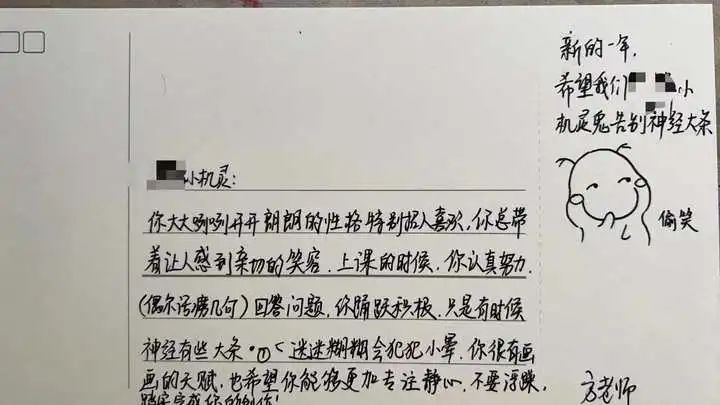 小机灵:
你大大咧咧开开朗朗的性格特别招人喜欢,你总带
着让人感到亲切的笑容.上课的时候,你认真努力.
(偶尔话痨几句)回答问题,你踊跃积极.只是有时候
神经有些大条·①<迷迷糊糊会犯犯小晕.你很有画
画的天赋,也希望你能够更加专注静心,不要浮躁,
踏实完成你的创作!
新的一年,
希望我们小
机灵鬼告别神经大条
偷笑
方老师